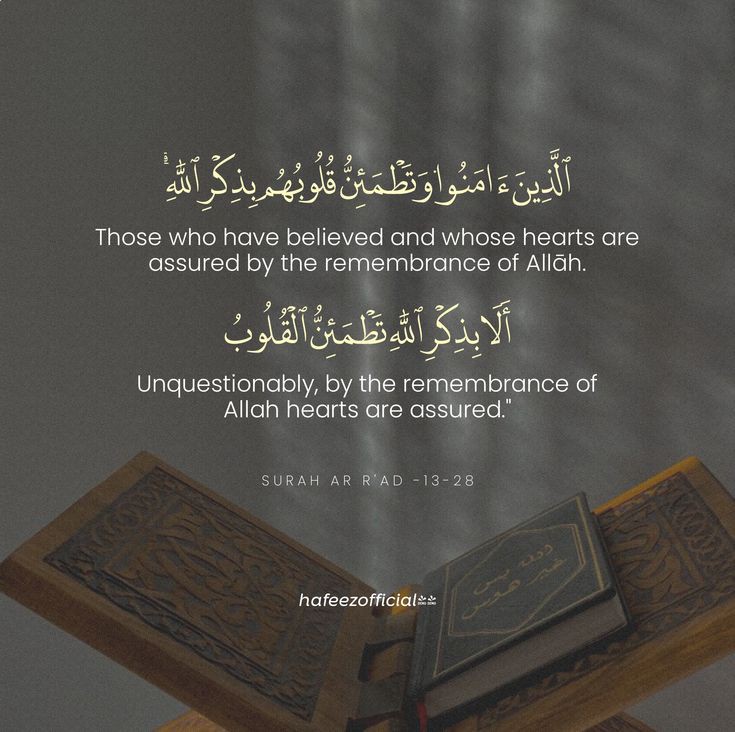 ٱلَّذِينَ ءَامَنُوا۟ وَتَطْمَئِنُّ قُلُوبُهُم بِذِكْرِ ٱللَّهِ ۗ
Those who have believed and whose hearts are
assured by the remembrance of Allāh.
أَلَا بِذِكْرِ ٱللَّهِ تَطْمَئِنُّ ٱلْقُلُوبُ
Unquestionably, by the remembrance of
Allah hearts are assured."
SURAH AR R'AD -13-28
hafeezofficial